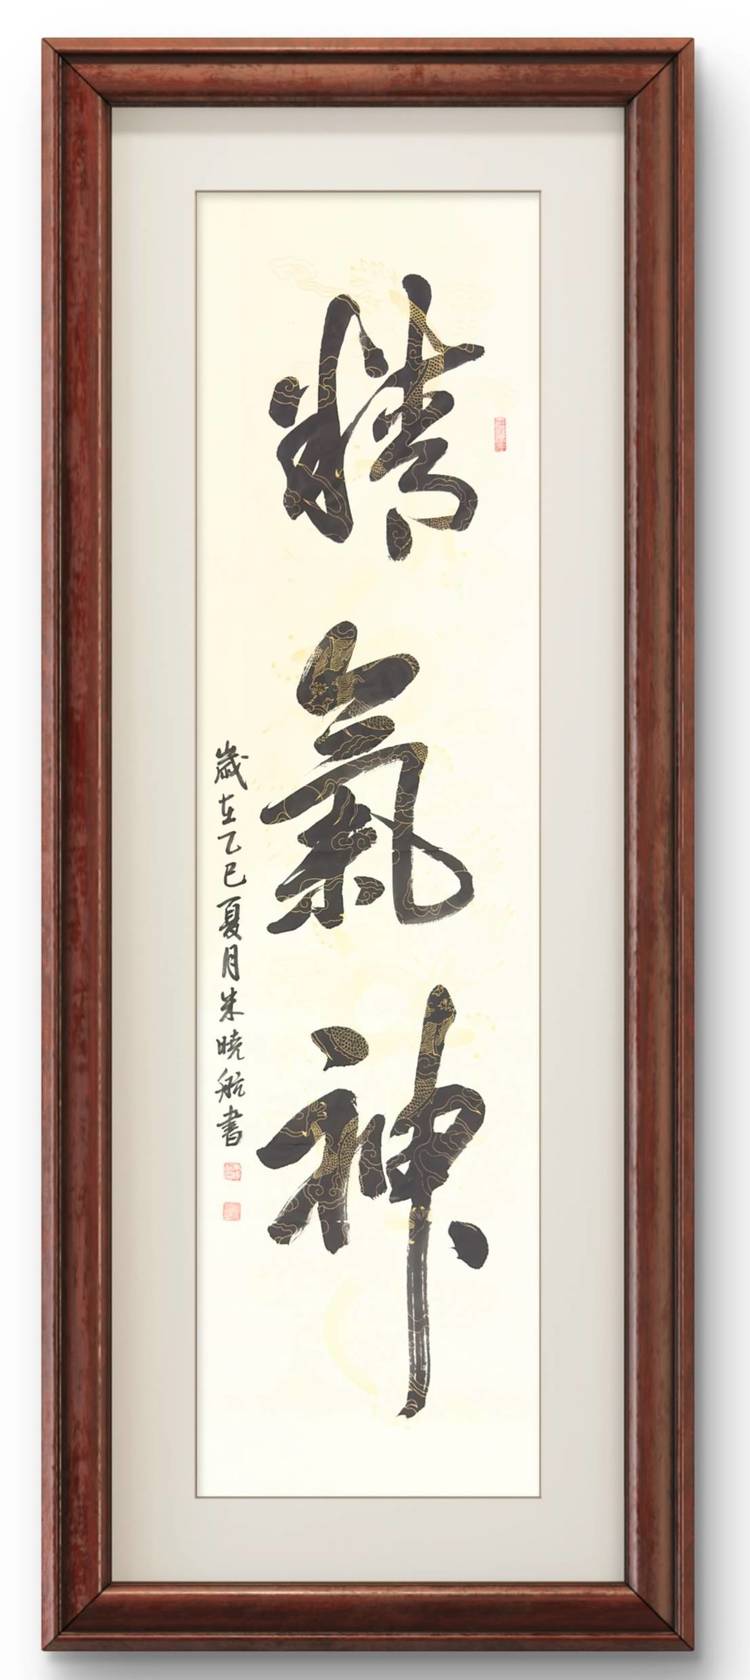 精氣神
歲在乙巳夏月朱曉航書